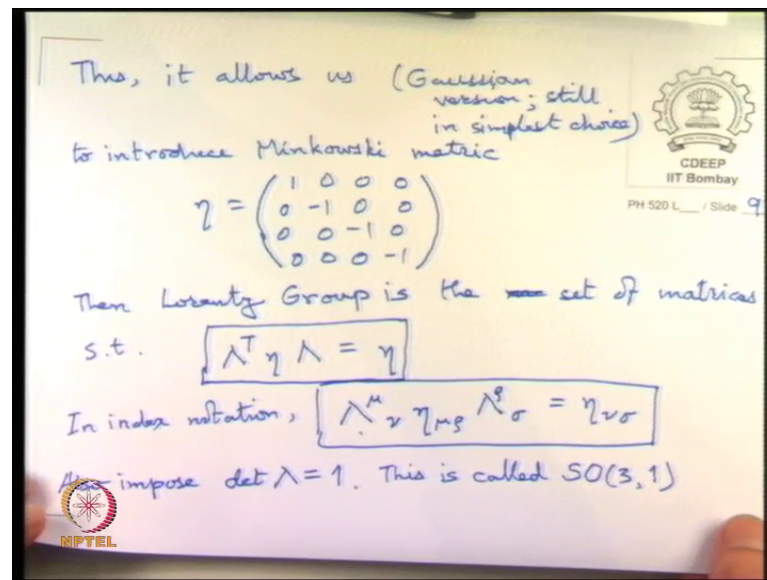 Thus, it allows us (Gaussian
version; still
in simplest choice)
to introduce Minkowski metric
η = ( 1 0 0 0
0 -1 0 0
0 0 -1 0
0 0 0 -1 )
CDEEP
IIT Bombay
PH 520 L___ / Slide 9
Then Lorentz Group is the set of matrices
s.t. Λᵀ η Λ = η
In index notation, Λ^μ_ν η_μρ Λ^ρ_σ = η_νσ
Also impose det Λ = 1. This is called SO(3,1)
NPTEL